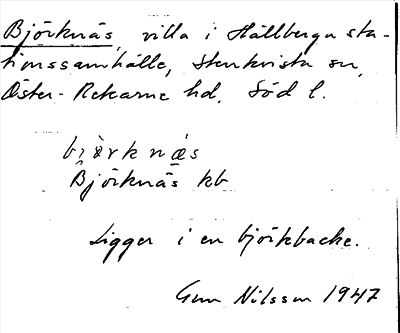 Björknäs, villa i Hällberga sta-
tionssamhälle, Stenkvista sn,
Öster-Rekarne hd, Söd l.
bi̯ò̀rknæ̀s
Björknäs kb
Ligger i en björkbacke.
Gun Nilsson 1947